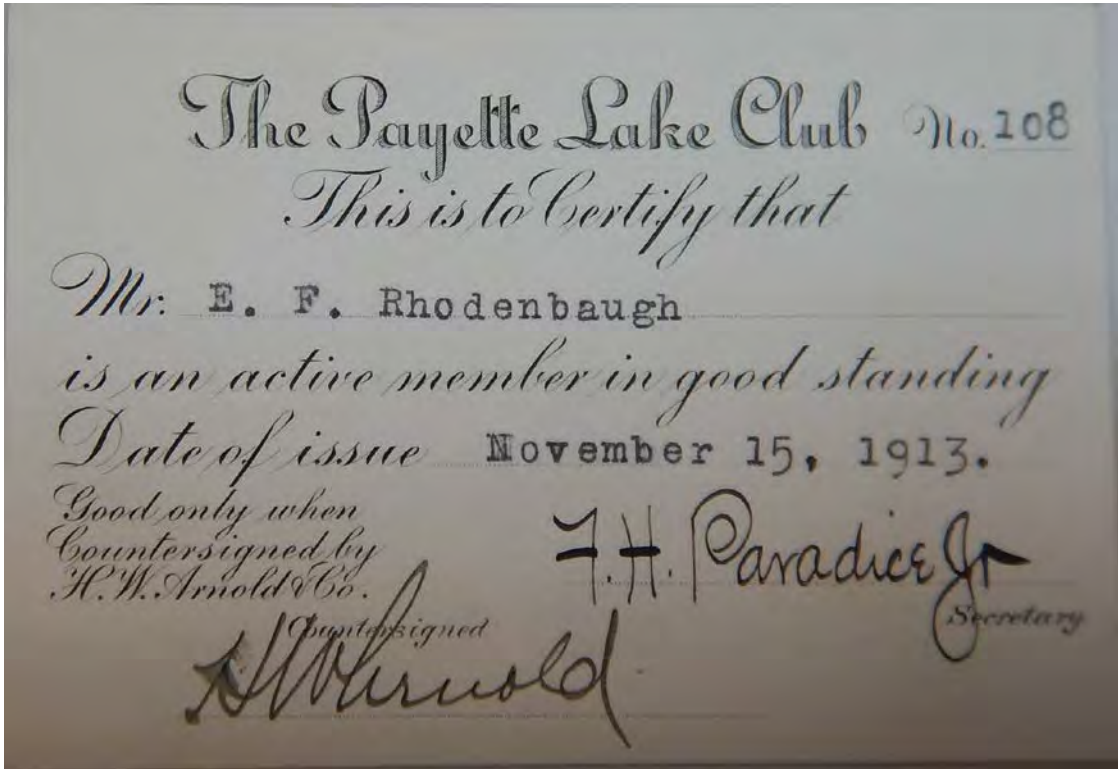 The Payette Lake Club No. 108
This is to Certify that
Mr. E. F. Rhodenbaugh
is an active member in good standing
Date of issue November 15, 1913.
Good only when
Countersigned by
H.W. Arnold & Co.
F. H. Paradice Jr
Secretary
Countersigned
H W Arnold